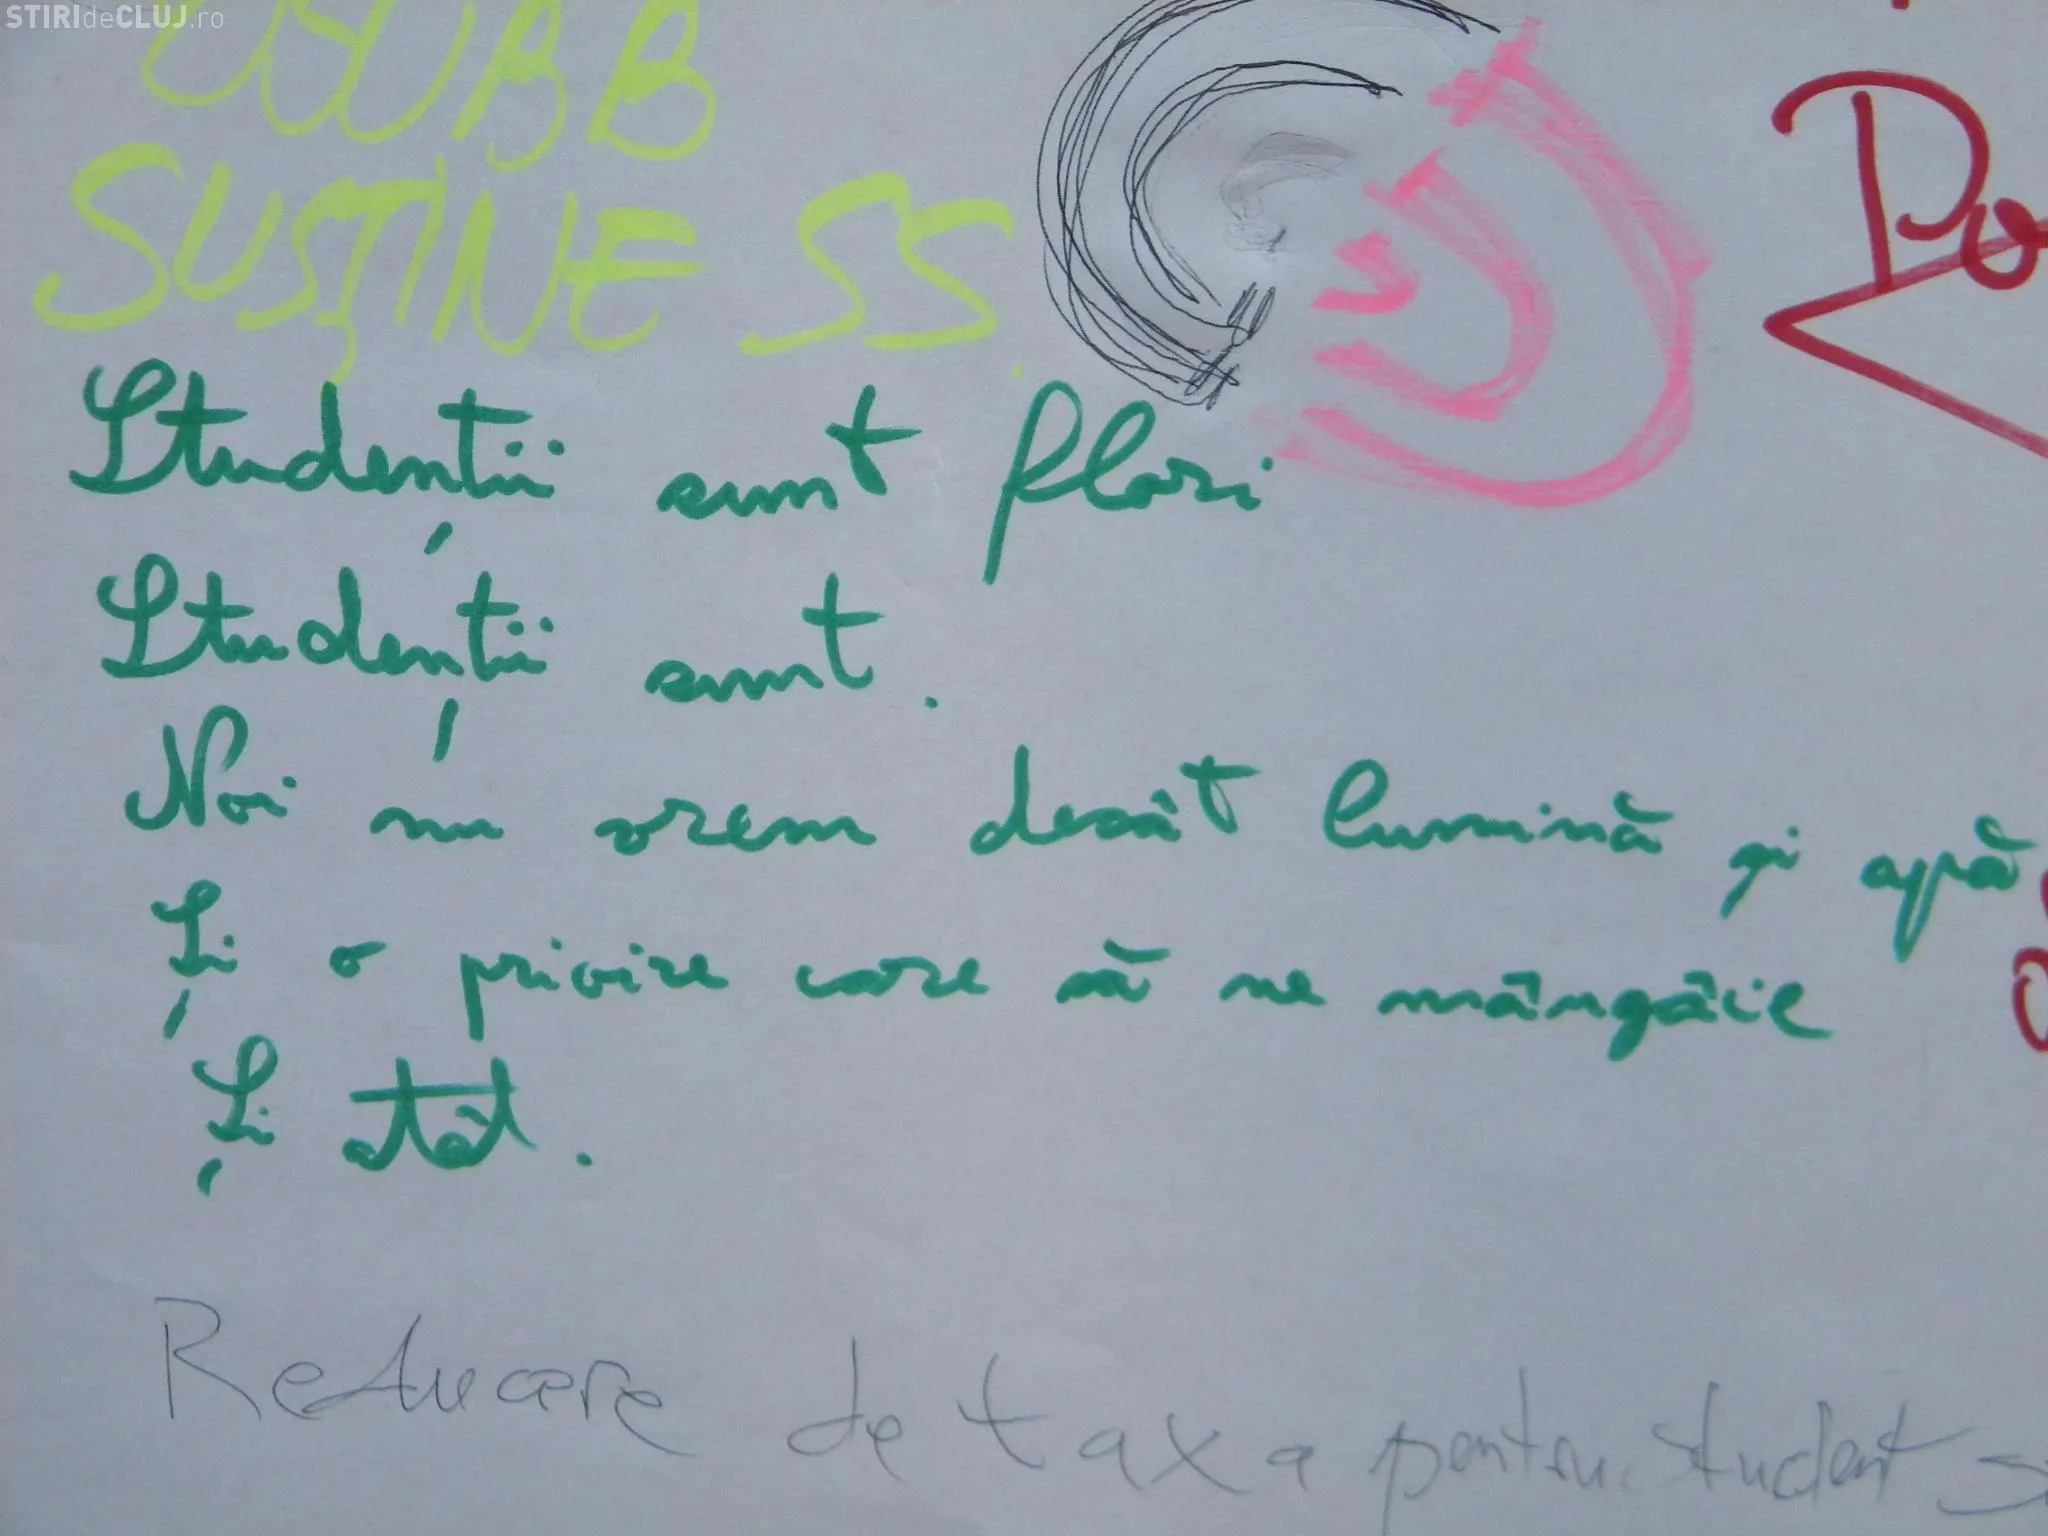 STIRIdeCLUJ.ro
OSUBB
SUSȚINE SS.
Studenții sunt flori
Studenții sunt.
Noi nu vrem decât lumină și apă
Și o privire care să ne mângâie
Și atât.
Reducere de taxa pentru student